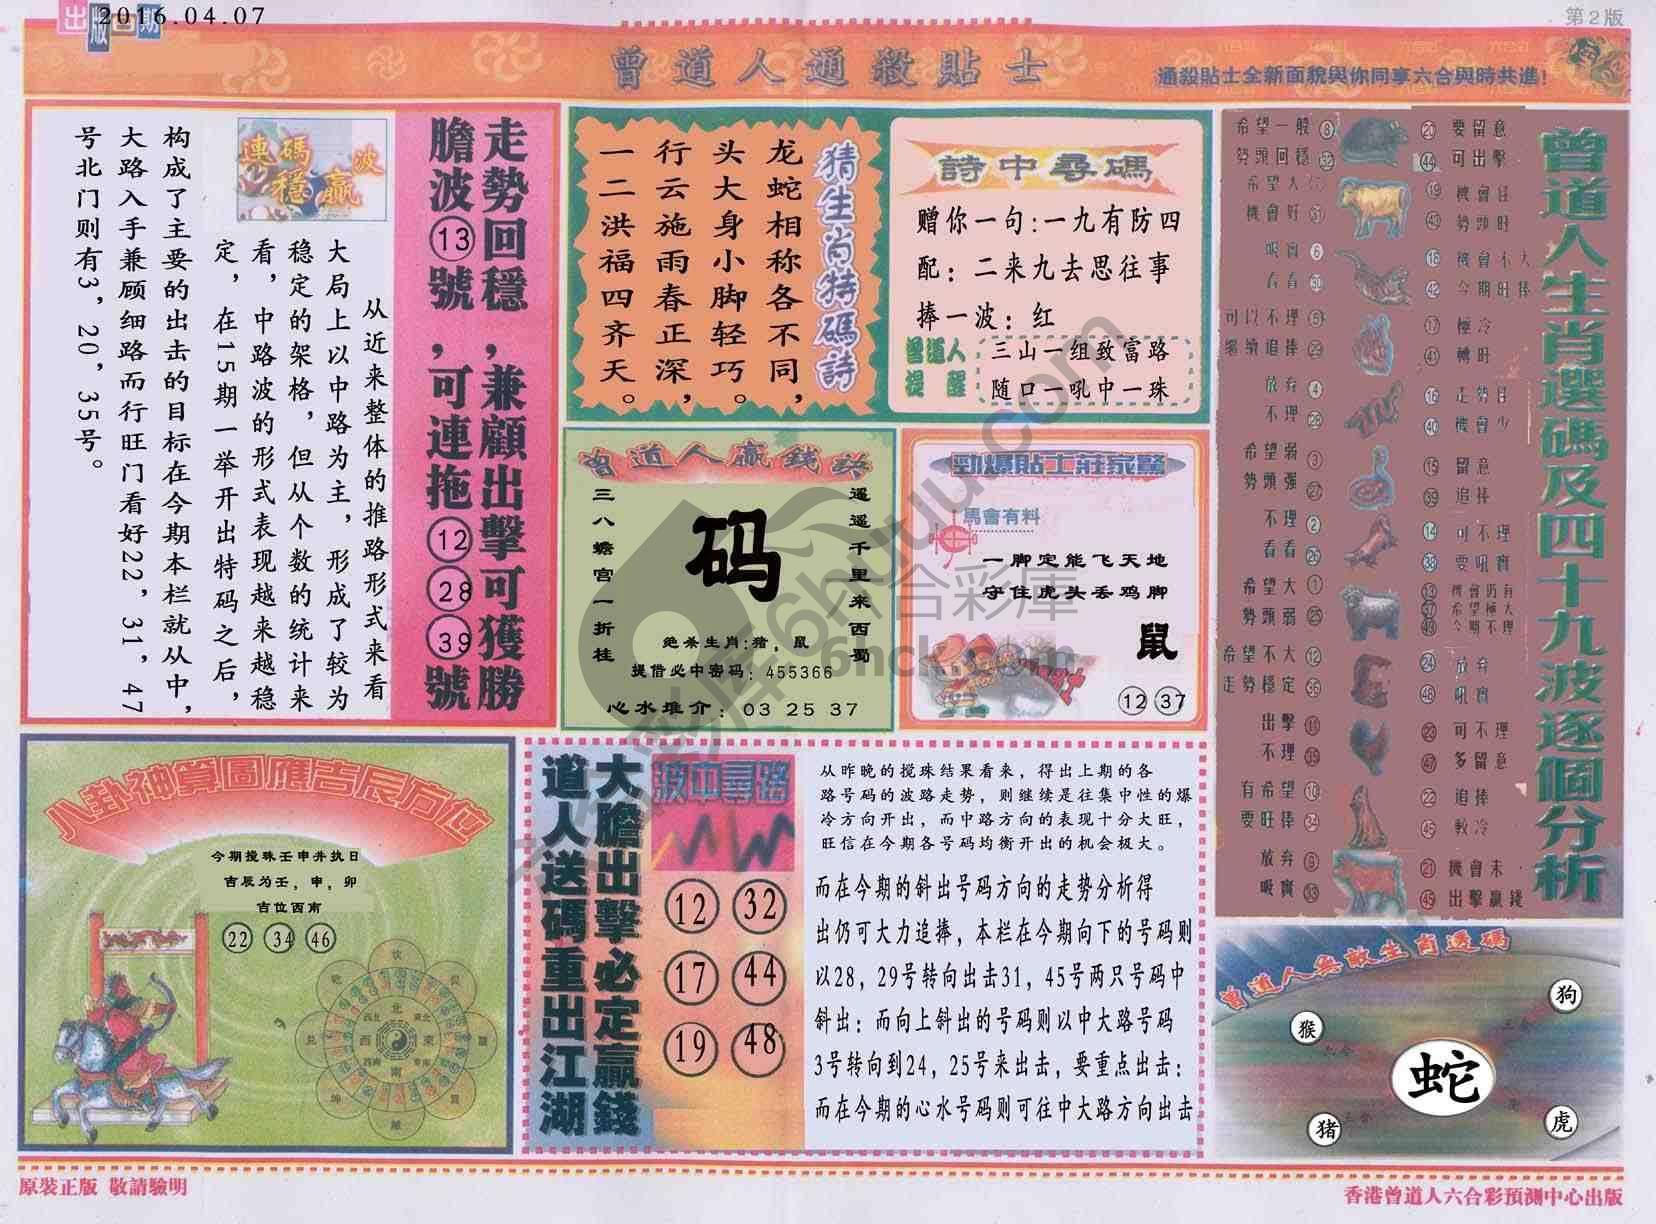 出版日期
2016.04.07
第2版
曾道人通殺貼士
通殺貼士全新面貌與你同享六合與時共進!
走勢回穩,兼顧出擊可獲勝
膽波⑬號,可連拖⑫㉘㊴號
連碼穩贏波
从近来整体的推路形式来看
大局上以中路为主,形成了较为
稳定的架格,但从个数的统计来
看,中路波的形式表现越来越稳
定,在15期一举开出特码之后,
构成了主要的出击的目标在今期本栏就从中,
大路入手兼顾细路而行旺门看好22,31,47
号北门则有3,20,35号。
猜生肖特碼詩
龙蛇相称各不同,
头大身小脚轻巧。
行云施雨春正深,
一二洪福四齐天。
詩中尋碼
赠你一句:一九有防四
配:二来九去思往事
捧一波:红
曾道人
提醒
三山一组致富路
随口一吼中一珠
曾道人贏錢訣
遥遥千里来西蜀
三八蟾宫一折桂
码
绝杀生肖:猪,鼠
提借必中密码:455366
心水堆介:03 25 37
勁爆貼士莊家驚
馬會有料
一脚定能飞天地
守住虎头丢鸡脚
鼠
⑫㊲
曾道人生肖選碼及四十九波逐個分析
希望一般 ⑧
⑳ 要留意
勢頭回穩 ㉜
㊹ 可出擊
希望大 ⑦
⑲ 機會旺
機會好 ㉛
㊸ 勢頭旺
吸實 ⑥
⑱ 機會不大
看看 ㉚
㊷ 今期旺捧
可以不理 ⑤
⑰ 極冷
繼續追捧 ㉙
㊶ 轉旺
放弃 ④
⑯ 走勢旺
不理 ㉘
㊵ 機會少
希望弱 ③
⑮ 留意
勢頭强 ㉗
㊴ 追捧
不理 ②
⑭ 可不理
看看 ㉖
㊳ 要吸實
希望大 ①
⑬ 機會仍有
㊲ 希望極大
勢頭弱 ㉕
㊾ 今期不理
希望不大 ⑫
㉔ 放弃
走勢穩定 ㊱
㊽ 吼實
出擊 ⑪
㉓ 可不理
不理 ㉟
㊼ 多留意
有希望 ⑩
㉒ 追捧
要旺捧 ㉞
㊺ 較冷
放弃 ⑨
㉑ 機會未
吸實 ㉝
㊺ 出擊贏錢
八卦神算圖應吉辰方位
今期搅珠壬申并执日
吉辰为壬,申,卯
吉位西南
㉒ ㉞ ㊻
北
西北
東北
西
東
西南
東南
南
大膽出擊必定贏錢
道人送碼重出江湖
波中尋路
⑫ ㉜
⑰ ㊹
⑲ ㊽
从昨晚的搅珠结果看来,得出上期的各
路号码的波路走势,则继续是往集中性的爆
冷方向开出,而中路方向的表现十分大旺,
旺信在今期各号码均衡开出的机会极大。
而在今期的斜出号码方向的走势分析得
出仍可大力追捧,本栏在今期向下的号码则
以28,29号转向出击31,45号两只号码中
斜出:而向上斜出的号码则以中大路号码
3号转向到24,25号来出击,要重点出击:
而在今期的心水号码则可往中大路方向出击
曾道人無敵生肖透碼
狗
猴
蛇
猪
虎
六合彩库6htutu.com
六合彩庫
6hck.com
原裝正版 敬請驗明
香港曾道人六合彩預测中心出版